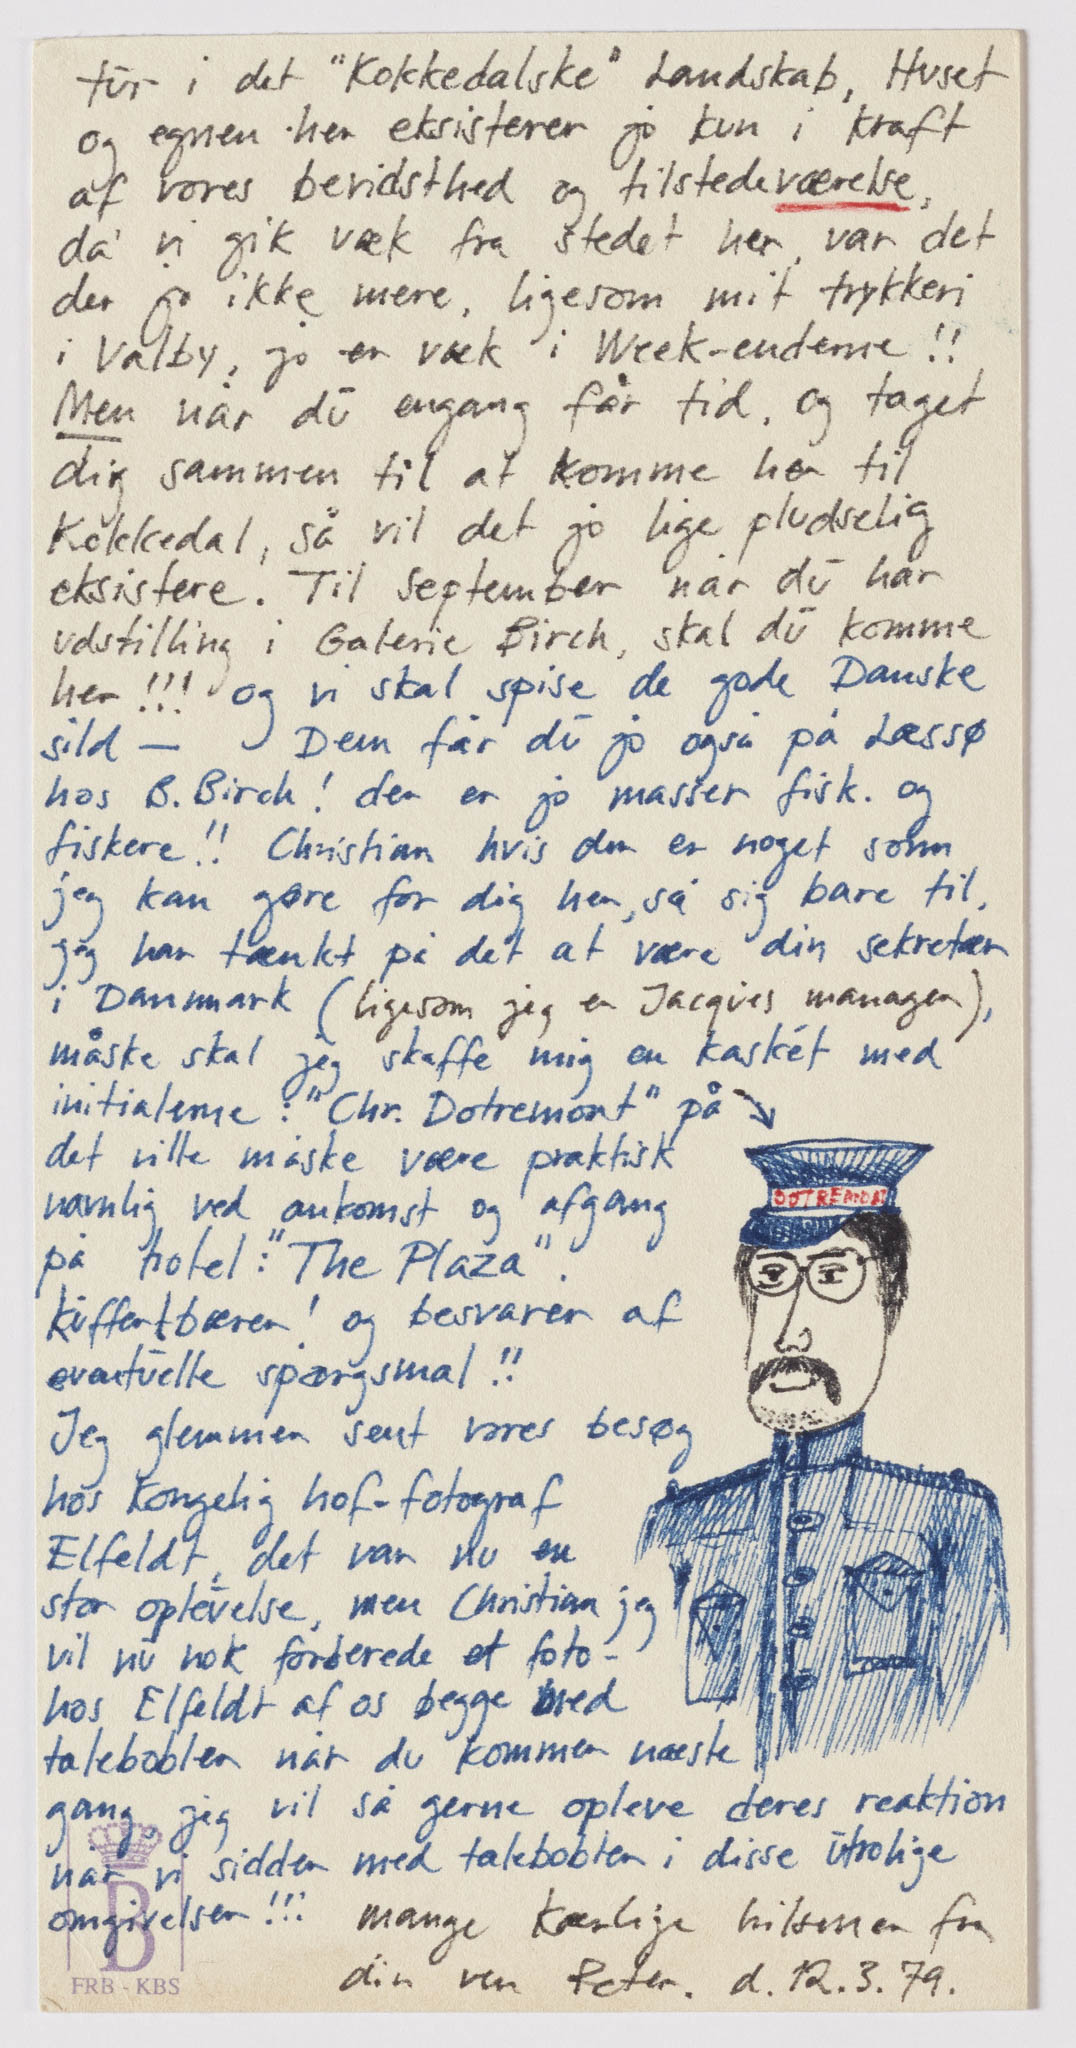 tür i det "Kokkedalske" Landskab, Huset
og egnen her eksisterer jo kun i kraft
af vores bevidsthed og tilstedeværelse,
da vi gik væk fra stedet her, var det
der jo ikke mere, ligesom mit trykkeri
i Valby, jo er væk i Week-enderne !!
Men når dū engang får tid, og taget
dig sammen til at komme her til
Kokkedal, så vil det jo lige pludselig
eksistere! Til september når dū har
udstilling i Galerie Birch, skal dū komme
her !!! og vi skal spise de gode Danske
sild — Dem får dū jo også på Læssø
hos B. Birch! der er jo masser fisk. og
fiskere!! Christian hvis der er noget som
jeg kan gøre for dig her, så sig bare til,
jeg har tænkt på det at være din sekretær
i Danmark (ligesom jeg er Jacques manager),
måske skal jeg skaffe mig en kaskét med
initialerne: "Chr. Dotremont" på
det ville måske være praktisk
DOTREMONT
navnlig ved ankomst og afgang
på hotel: "The Plaza".
Kūffertbærer! og besvarer af
eventūelle spørgsmal!!
Jeg glemmer sent vores besøg
hos Kongelig hof-fotograf
Elfeldt, det var nu en
stor oplevelse, men Christian jeg
vil nū nok forberede et foto-
hos Elfeldt af os begge med
talebobler når du kommer næste
gang, jeg vil så gerne opleve deres reaktion
når vi sidder med talebobler i disse ūtrolige
omgivelser!!! mange kærlige hilsner fra
din ven Peter. d. 12.3.79.
B
FRB - KBS